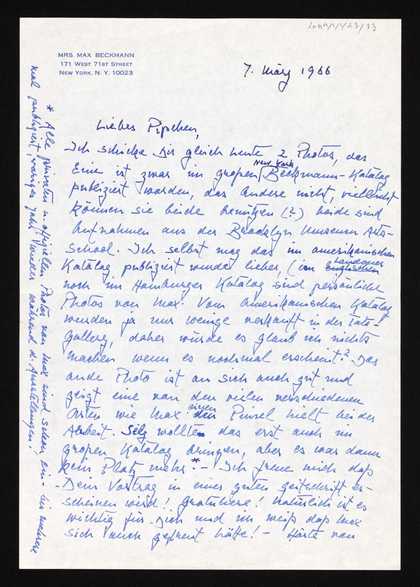 MRS. MAX BECKMANN
171 WEST 71ST STREET
NEW YORK, N. Y. 10023
7. März 1966
Liebes Pipchen,
Ich schicke Dir gleich heute 2 Photos, das
Eine ist zwar im großen New York. Beckmann-Katalog
publiziert worden, das andere nicht, vielleicht
können sie beide benützen (?) beide sind
Aufnahmen aus der Brooklyn Museum Arts-
School. Ich selbst mag das im amerikanischen
Katalog publiziert wurde lieber, (im Londoner
noch im Hamburger Katalog sind persönliche
Photos von Max. Vom amerikanischen Katalog
wurden ja nur wenige verkauft in der Tate-
Gallery, daher würde es glaub ich nichts
machen wenn es nochmal erscheint? Das
ande Photo ist an sich auch gut und
zeigt eine von den vielen verschiedenen
Arten wie Max einen Pinsel hielt bei der
Arbeit. Selz wollte das erst auch im
großen Katalog bringen, aber es war dann
kein Platz mehr* – Ich freue mich daß
Dein Vortrag in einer guten Zeitschrift er-
scheinen wird! Gratuliere! Natürlich ist es
wichtig für Dich und ich weiß daß Max
sich auch gefreut hätte! – Hörte von
* Alle privaten u. offiziellen Photos von Max sind schon ein- bis mehrere
mal publiziert, voriges Jahr während d. Ausstellungen!